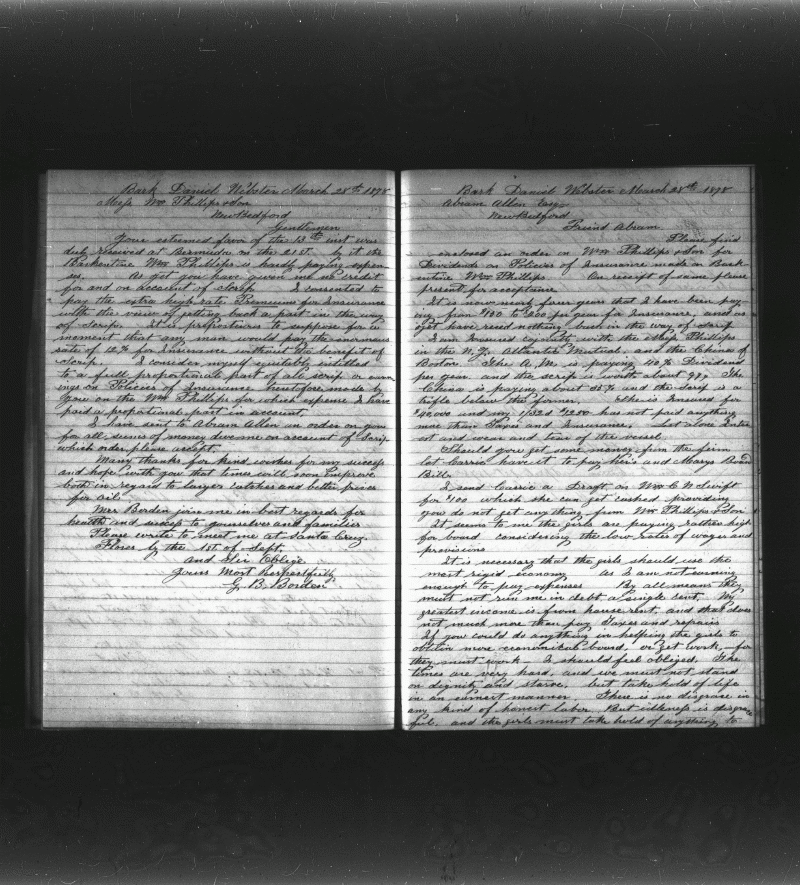 Bark Daniel Webster March 28th 1898
Mess Wm Phillips & Son
New Bedford
Gentlemen
Your esteemed favor of the 13th inst was
duly received at Bermuda on the 21st. by it the
Barkentine Wm Phillips is hardly paying expen
ses. As yet you have given me no credit
for and on account of scrip. I consented to
pay the extra high rate Premiums for Insurance
with the view of getting back a part in the way
of scrip. It is preposterous to suppose for a
moment that any man would pay the enormous
rate of 12% for Insurance without the benefit of
scrip. I consider myself justly entitled
to a full proportional part of all scrip or earn
ings on Policies of Insurance heretofore made by
you on the Wm Phillips for which expense I have
paid a proportional part in account.
I have sent to Abram Allen an order on you
for all sums of money due me on account of Scrip
which order please accept.
Many thanks for kind wishes for my success
and hope with you that times will soon improve
both in regard to larger catches and better prices
for oil
Mrs Borden join me in best regards for
health and success to yourselves and families
Please write to meet me at Santa Cruz
Flores by the 1st of Sept.
and Sir Oblige
Yours Most Respectfully
G. B. Borden
Bark Daniel Webster March 28th 1898
Abram Allen Esq
New Bedford
Friend Abram
Please find
enclosed an order on Wm Phillips & Son for
Dividends on Policies of Insurance made on Bark-
entine Wm Phillips. On receipt of same please
present for acceptance
It is now nearly four years that I have been pay-
ing from $100 to $200 per year for Insurance, and as
yet have recd nothing back in the way of scrip
I am Insured equally with the Mess Phillips
in the N.Y. Atlantic Mutual and the China of
Boston. The A. M. is paying 40% Dividend
per year and the scrip is worth about 99. The
China is paying about 35% and the scrip is a
trifle below the former. She is Insured for
$40,000 and my 1/32d $1250 has not paid anything
more than Taxes and Insurance. Let alone Inter
est and wear and tear of the vessel
Should you get some money from the firm
let Carrie have it to pay hers and Marys Board
Bills.
I send Carrie a Draft on Wm C N Swift
for $100 which she can get cashed providing
you do not get anything from Wm Phillips & Son
It seems to me the girls are paying rather high
for board considering the low rates of wages and
provisions
It is necessary that the girls should use the
most rigid economy As I am not earning
enough to pay expenses By all means they
must not run me in debt a single cent. My
greatest income is from house rent, and that does
not much more than pay Taxes and repairs
If you could do anything in helping the girls to
obtain more economical board, or get work, for
they must work I should feel obliged. The
times are very hard, and we must not stand
on dignity and starve, but take hold of life
in an earnest manner There is no disgrace in
any kind of honest labor But idleness is disgrace
ful, and the girls must take hold of anything to